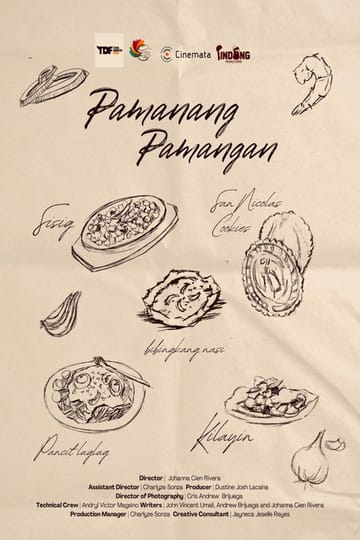 TDF
Cinemata
PINDONG
Pamanang
Pamangan
Sisig
San Nicolas
Cookies
bibingkang nasi
Pancit luglug
Kilayin
Director | Johanna Cien Rivera
Assistant Director | Charlyze Sonza Producer | Dustine Josh Lacsina
Director of Photography | Cris Andrew Brijuega
Technical Crew | Andryl Victor Magsino Writers | John Vincent Umali, Andrew Brijuega and Johanna Cien Rivera
Production Manager | Charlyze Sonza Creative Consultant | Jayneca Jeselle Reyes